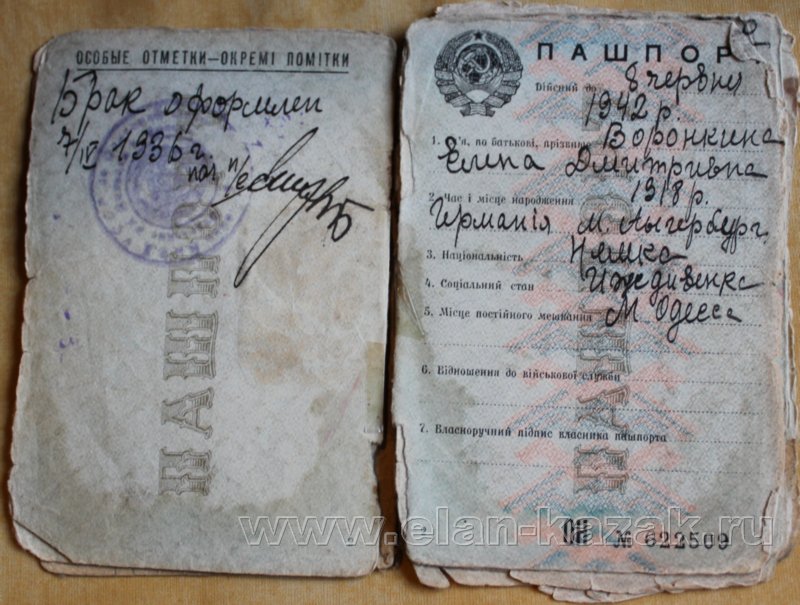 ОСОБЫЕ ОТМЕТКИ—ОКРЕМІ ПОМІТКИ
Брак оформлен
7/IV 1936 г.
ПАШПОРТ
ПАШПОР
Дійсний до 8 червня
1942 р.
1. Ім'я, по батькові, прізвище Воронкина
Елена Дмитривна
2. Час і місце народження 1918 р.
Германія м. Ангербург.
3. Національність Нимка
4. Соціяльний стан Иждивенка
5. Місце постійного мешкання М. Одесса
6. Відношення до військової служби
7. Власноручний підпис власника пашпорта
№ 622509
www.elan-kazak.ru